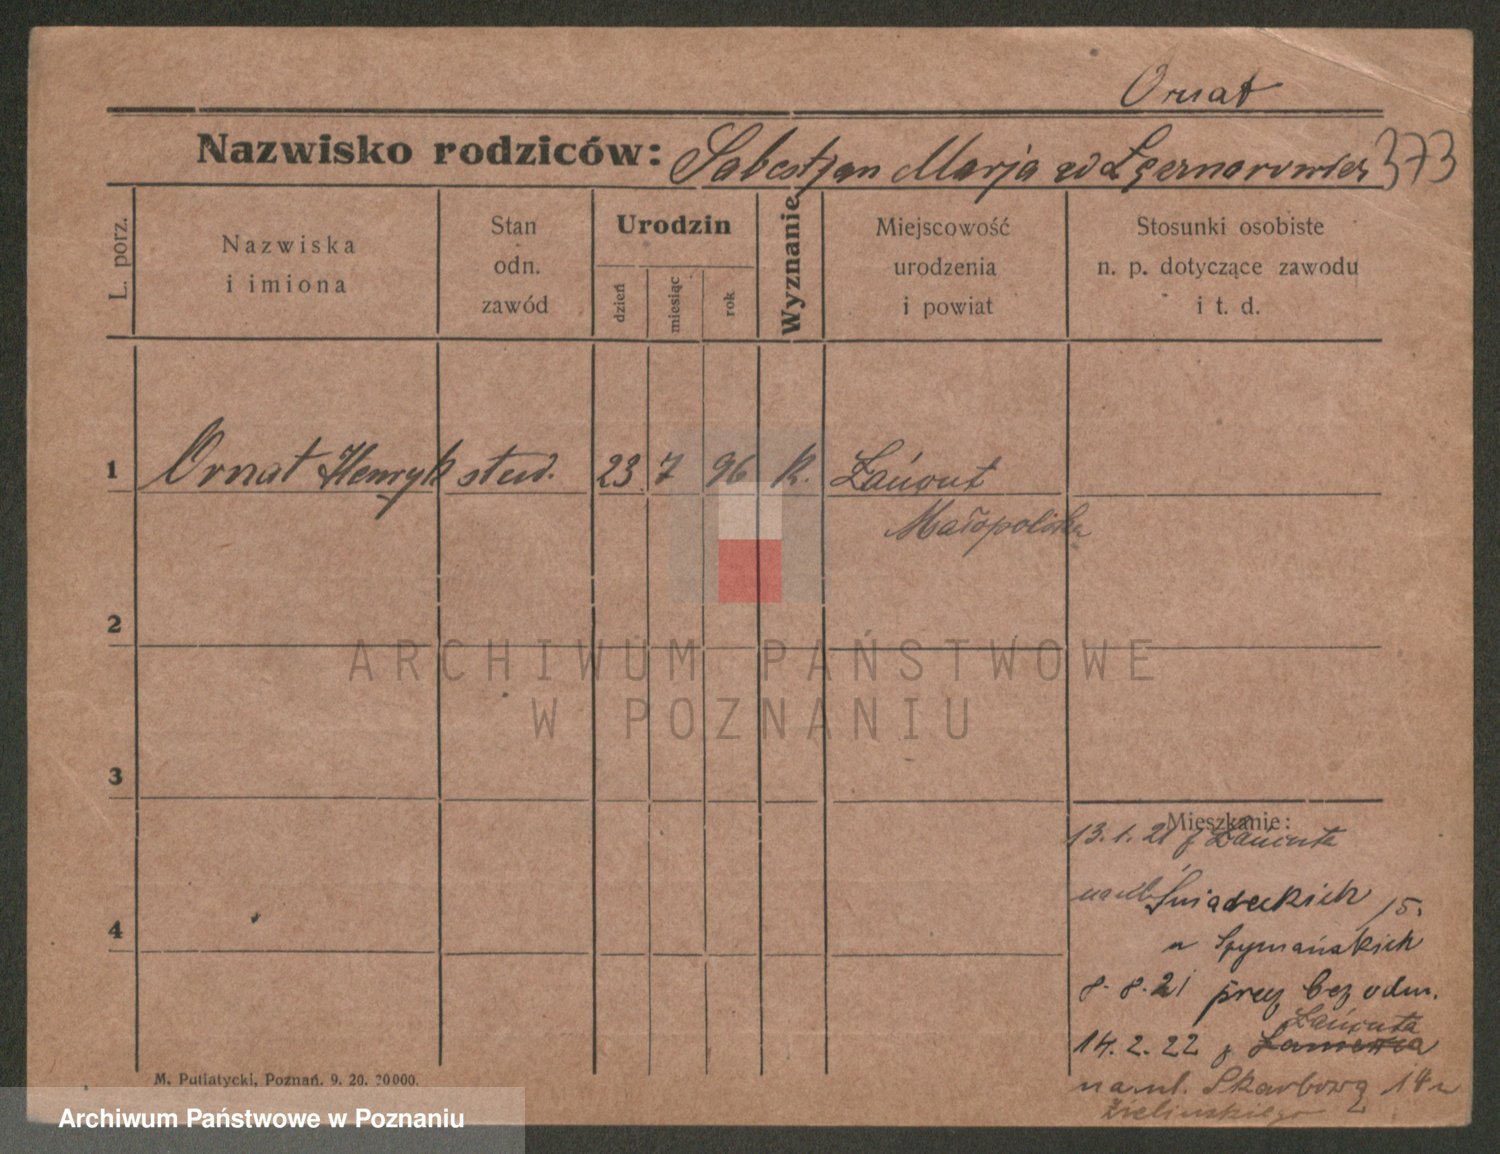 Ornat
Nazwisko rodziców: Sabestjan Marja zd 373
L. porz.
Nazwiska
i imiona
Stan
odn.
zawód
Urodzin
dzień
miesiąc
rok
Wyznanie
Miejscowość
urodzenia
i powiat
Stosunki osobiste
n. p. dotyczące zawodu
i t. d.
1 Ornat Henryk stud. 23. 7 96 R. Łańcut
Małopolska
2
ARCHIWUM PAŃSTWOWE
W POZNANIU
3
Mieszkanie:
13.1.21 z Łańcuta
na ul. Śniadeckich 15.
4
u Szymańskich
8.8.21 precz bez odm.
Łańcuta
14.2.22 z
na ul. Skarbową 14 u
Zielinskiego
M. Putiatycki, Poznań. 9. 20. 20000.
Archiwum Państwowe w Poznaniu